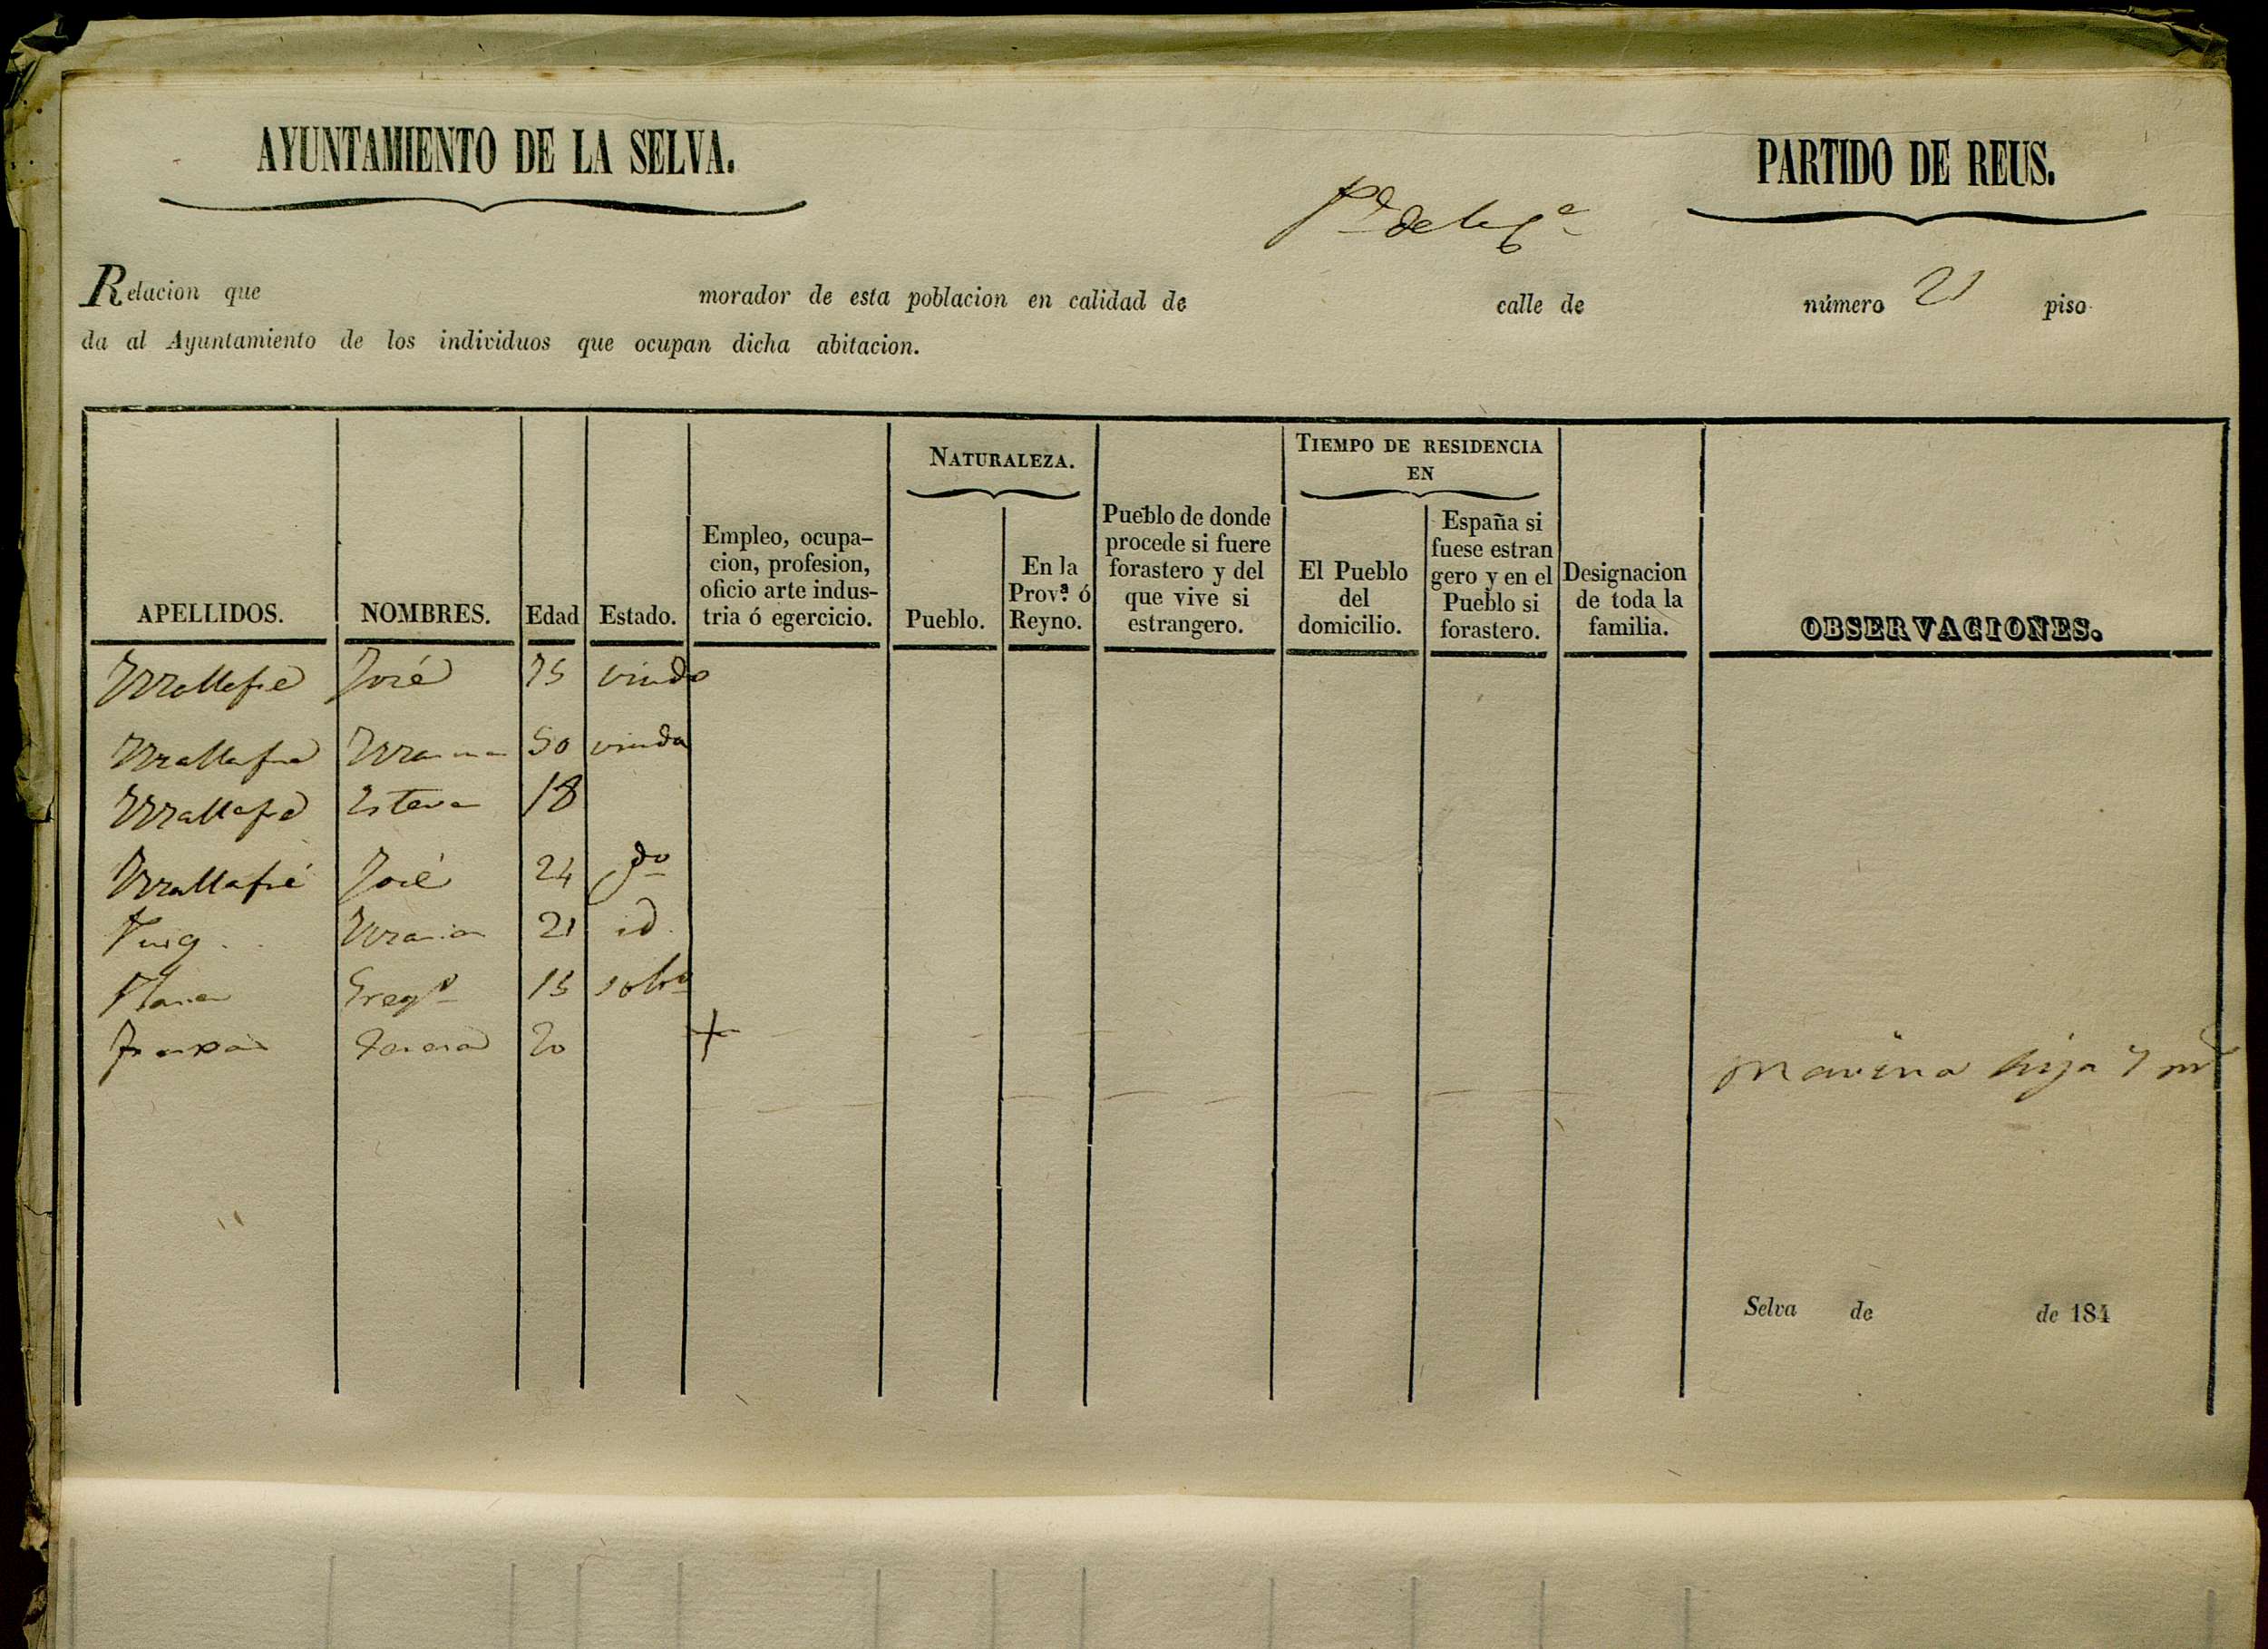 AYUNTAMIENTO DE LA SELVA.
PARTIDO DE REUS.
Relacion que morador de esta poblacion en calidad de calle de número 21 piso
da al Ayuntamiento de los individuos que ocupan dicha abitacion.
NATURALEZA.
TIEMPO DE RESIDENCIA
EN
APELLIDOS.
NOMBRES.
Edad
Estado.
Empleo, ocupa-
cion, profesion,
oficio arte indus-
tria ó egercicio.
Pueblo.
En la
Prov.ª ó
Reyno.
Pueblo de donde
procede si fuere
forastero y del
que vive si
estrangero.
El Pueblo
del
domicilio.
España si
fuese estran
gero y en el
Pueblo si
forastero.
Designacion
de toda la
familia.
OBSERVACIONES.
Mallafré José 75 viudo
Mallafré 50 viuda
Mallafré Esteva 18
Mallafré José 24 do
Puig Maria 21 id.
Greg.o 15
20 +
Marina hija 7
Selva de de 184